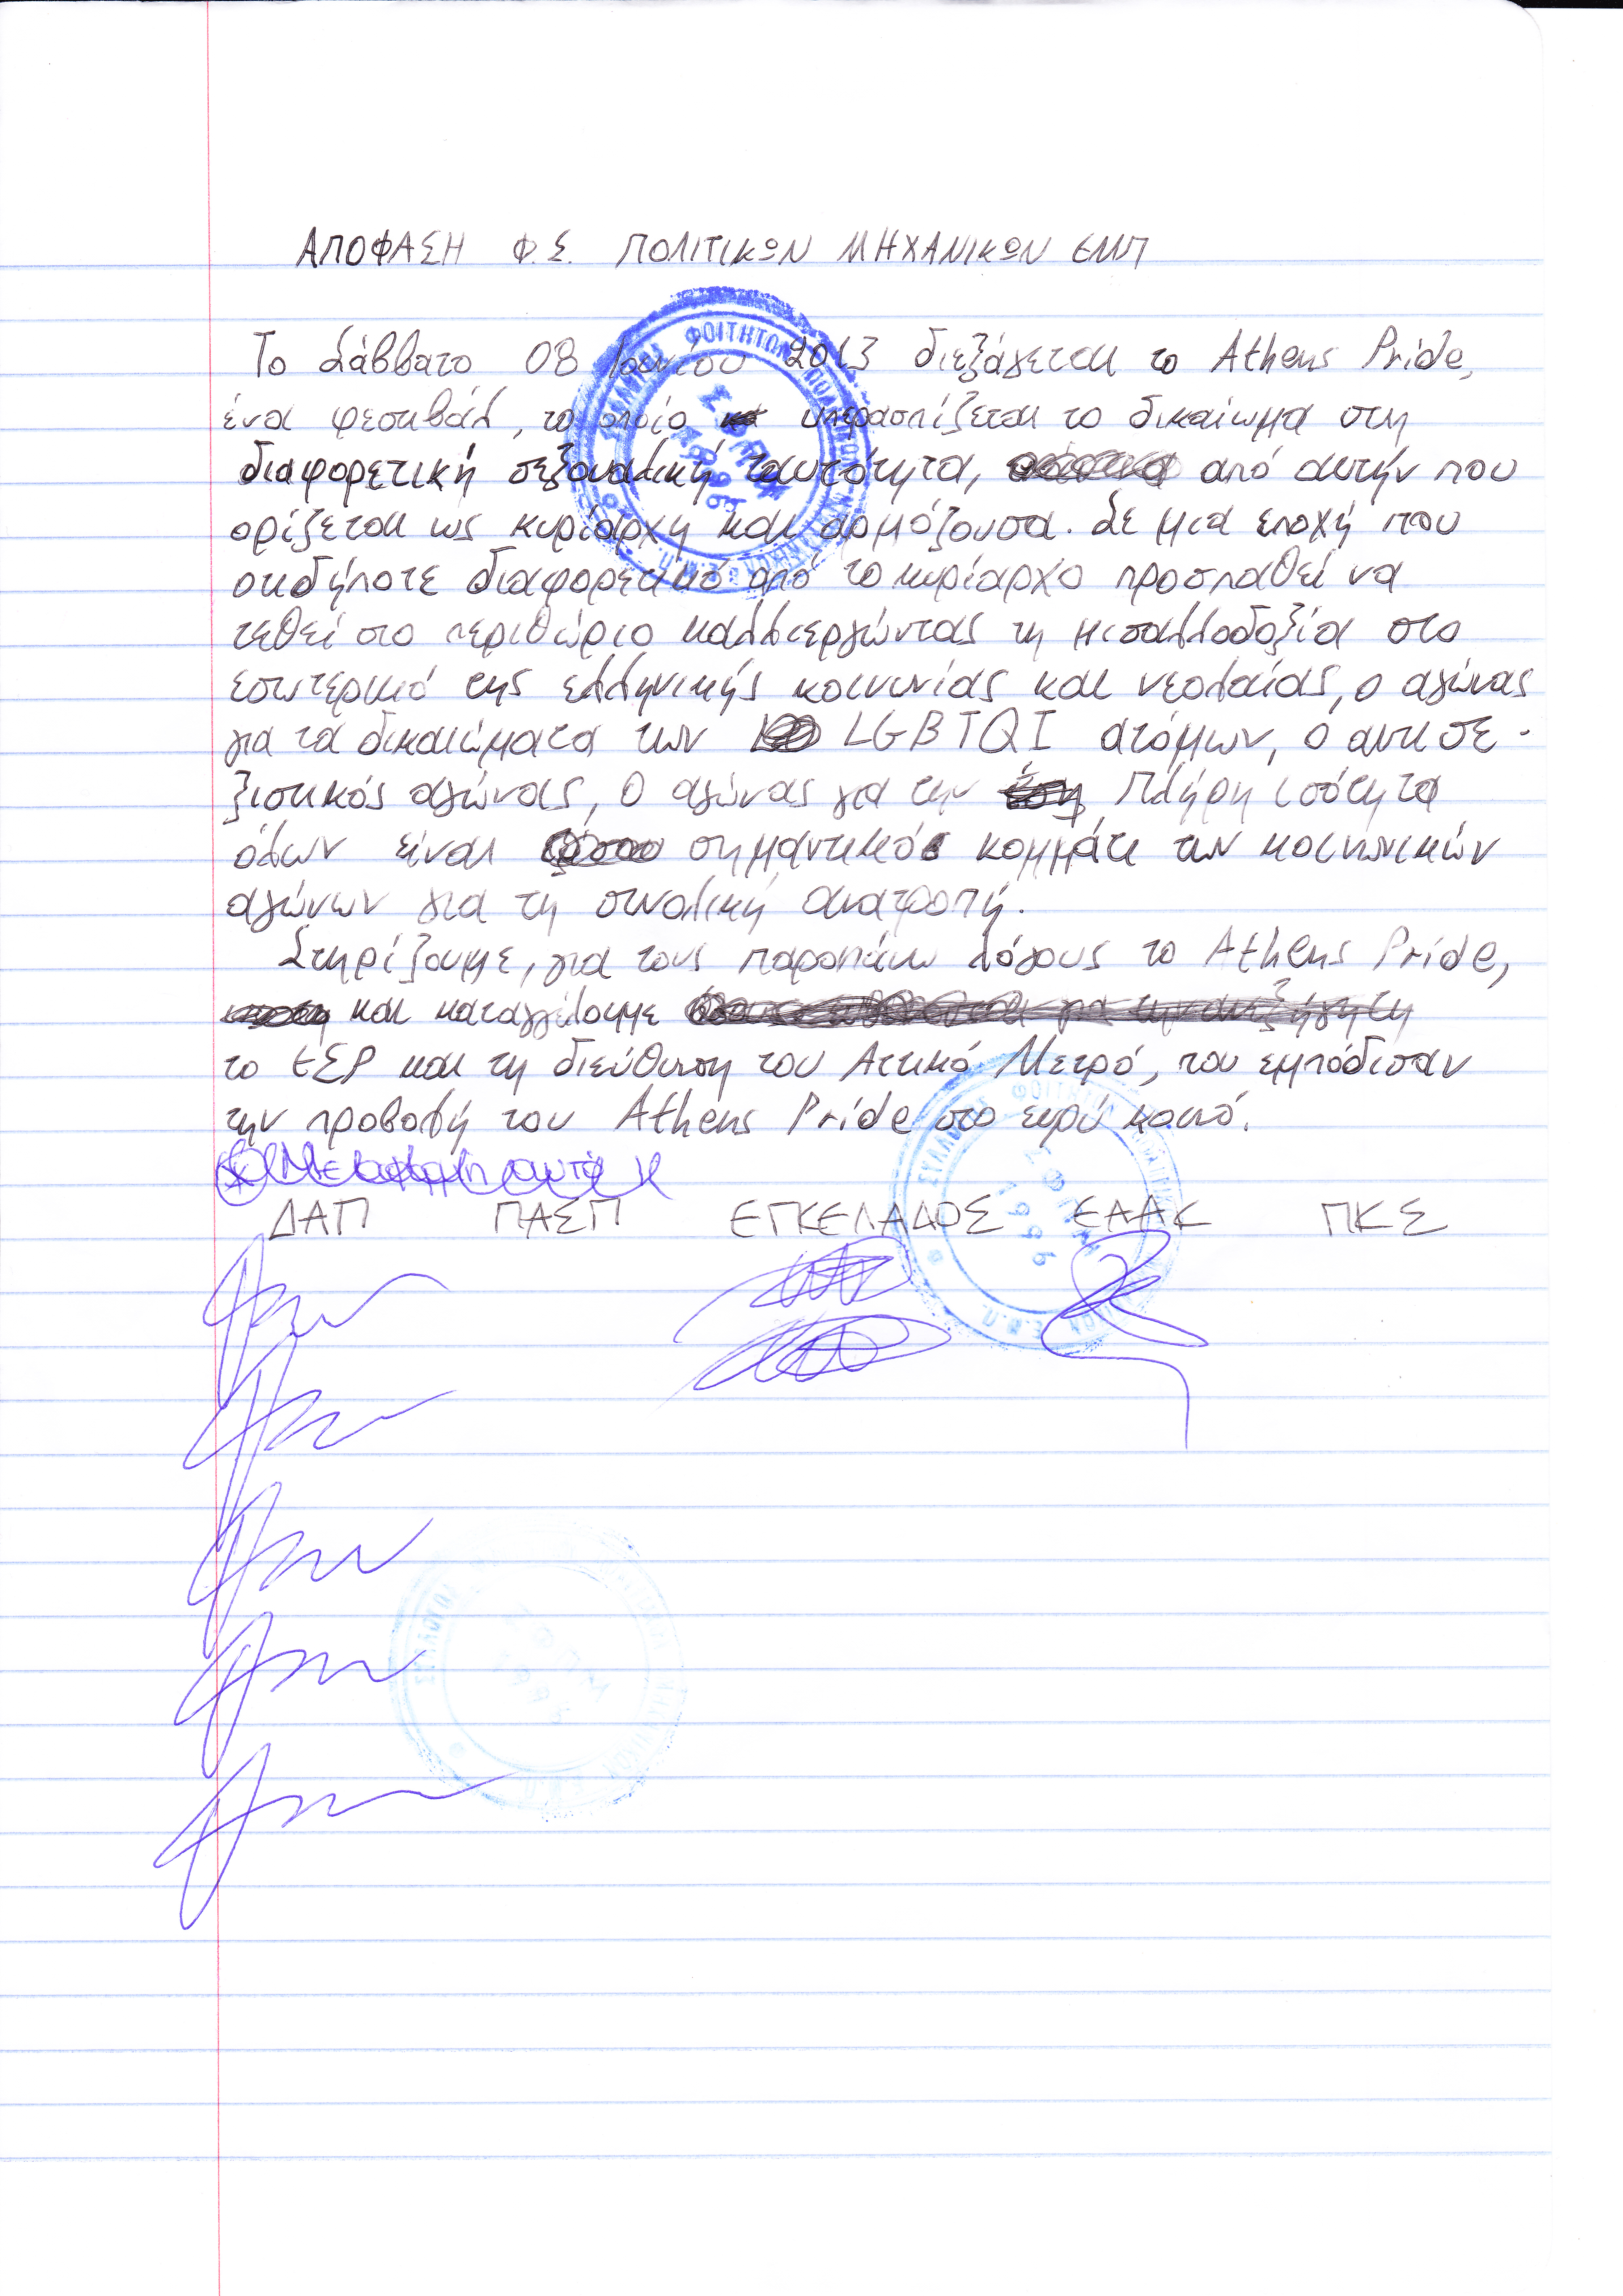 ΑΠΟΦΑΣΗ Φ.Σ. ΠΟΛΙΤΙΚΩΝ ΜΗΧΑΝΙΚΩΝ ΕΜΠ
Το Σάββατο 08 Ιουνίου 2013 διεξάγεται το Athens Pride,
ένα φεστιβάλ, το οποίο υπερασπίζεται το δικαίωμα στη
διαφορετική σεξουαλική ταυτότητα, από αυτήν που
ορίζεται ως κυρίαρχη και αρμόζουσα. Σε μια εποχή που
οτιδήποτε διαφορετικό από το κυρίαρχο προσπαθεί να
τεθεί στο περιθώριο καλλιεργώντας τη μισαλλοδοξία στο
εσωτερικό της ελληνικής κοινωνίας και νεολαίας, ο αγώνας
για τα δικαιώματα των LGBTQI ατόμων, ο αντισε-
ξιστικός αγώνας, ο αγώνας για την πλήρη ισότητα
όλων είναι σημαντικό κομμάτι των κοινωνικών
αγώνων για τη συνολική ανατροπή.
Στηρίζουμε, για τους παραπάνω λόγους το Athens Pride,
και καταγγέλουμε
το ΕΣΡ και τη διεύθυνση του Αττικό Μετρό, που εμπόδισαν
την προβολή του Athens Pride στο ευρύ κοινό.
ΔΑΠ ΠΑΣΠ ΕΓΚΕΛΑΔΟΣ ΕΑΑΚ ΠΚΣ
ΣΥΛΛΟΓΟΣ ΦΟΙΤΗΤΩΝ ΠΟΛΙΤΙΚΩΝ ΜΗΧΑΝΙΚΩΝ Ε.Μ.Π.
ΣΦΠΜ
1996